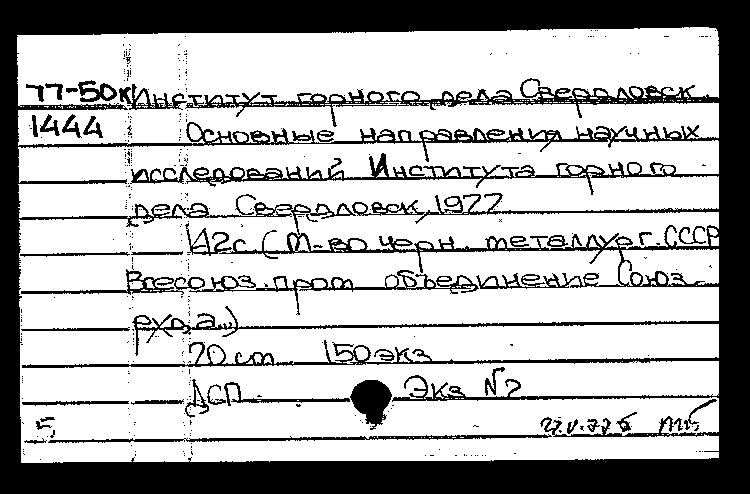 77-50к Институт горного дела Свердловск.
1444 Основные направления научных
исследований Института горного
дела Свердловск, 1977
42с. (М-во черн. металлург. СССР
Всесоюз. пром объединение Союз-
руда...)
20 cm 150 экз.
ДСП. Экз №2
5